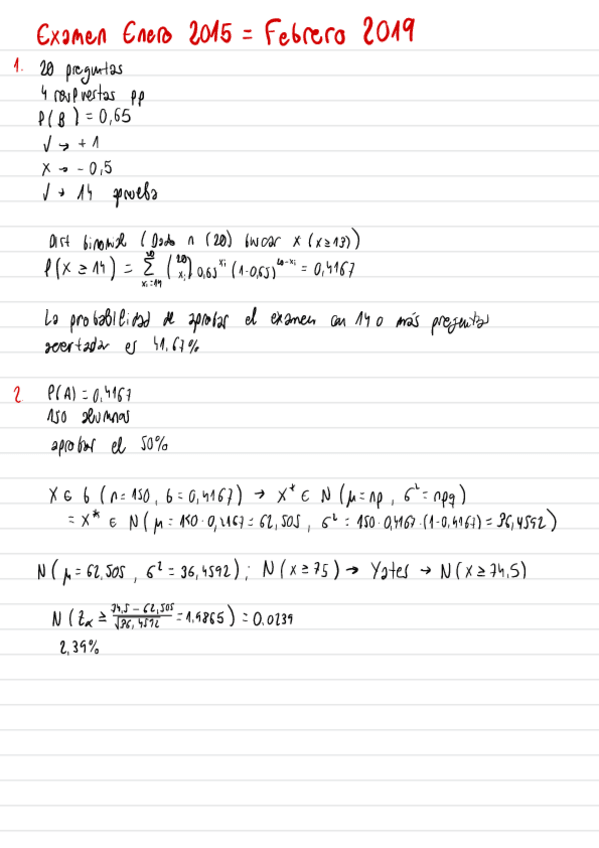 Examen Enero 2015 = Febrero 2019
1. 20 preguntas
4 respuestas pp
P(B) = 0,65
√ → +1
x → -0,5
√ → 14 prueba
Dist binomial (Dado n (20) buscar x (x≥13))
P(X ≥ 14) = 20 Σ xi=14 (20 xi) 0,65^xi (1-0,65)^20-xi = 0,4167
La probabilidad de aprobar el examen con 14 o más preguntas
acertadas es 41,67%
2 P(A) = 0,4167
150 alumnos
aprobar el 50%
X ∈ b (n=150, b=0,4167) → X* ∈ N (μ=np, σ²=npq)
= X* ∈ N (μ = 150·0,4167 = 62,505, σ² = 150·0,4167·(1-0,4167) = 36,4592)
N (μ = 62,505, σ² = 36,4592); N (x ≥ 75) → Yates → N (x ≥ 74,5)
N (zα ≥ 74,5 - 62,505 / √36,4592 = 1,9865) = 0.0239
2,39%